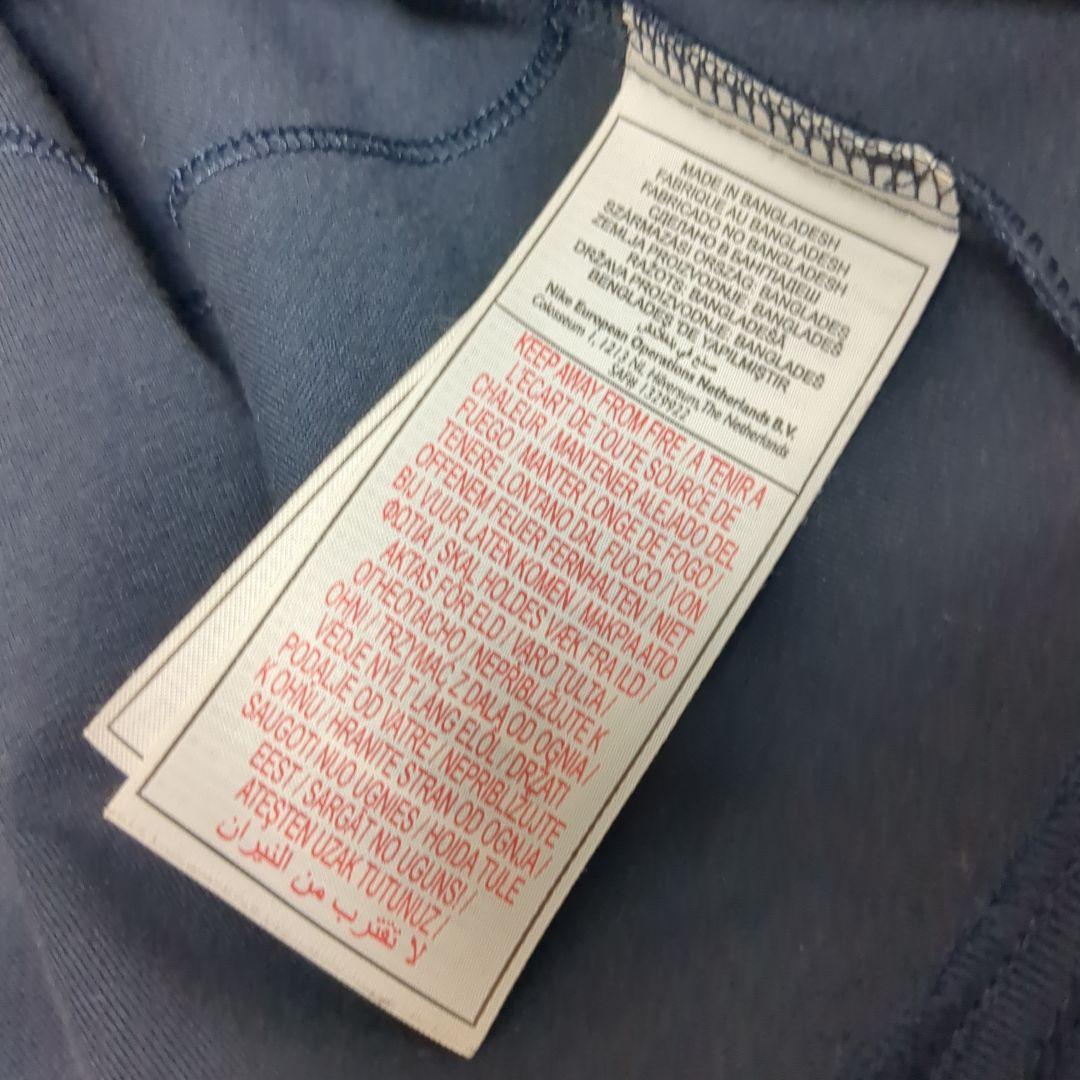 MADE IN BANGLADESH
FABRIQUE AU BANGLADESH
FABRICADO NO BANGLADESH
СДЕЛАНО В БАНГЛАДЕШ
SZÁRMAZÁSI ORSZÁG: BANGLADES
ZEMLJA PROIZVODNJE: BANGLADES
RAŽOTS, BANGLADEŠA
DRŽAVA PROIZVODNJE: BANGLADEŠ
BENGLADEŞ'DE YAPILMIŞTIR
صنع في بنغلادش
Nike European Operations Netherlands B.V.
Colosseum 1, 1213 NL Hilversum, The Netherlands
KEEP AWAY FROM FIRE / A TENIR A
L'ECART DE TOUTE SOURCE DE
CHALEUR / MANTENER ALEJADO DEL
FUEGO / MANTER LONGE DE FOGO /
TENERE LONTANO DAL FUOCO / VON
OFFENEM FEUER FERNHALTEN / NIET
BIJ VUUR LATEN KOMEN / ΜΑΚΡΙΑ ΑΠΟ
ΦΩΤΙΑ / SKAL HOLDES VÆK FRA ILD /
AKTAS FÖR ELD / VARO TULTA /
ОГНЕОПАСНО / NEPŘIBLIŽUJTE K
OHNI / TRZYMAĆ Z DALA OD OGNIA /
VÉDJE NYÍLT LANG ELŐL / DRŽATI
PODALJE OD VATRE / NEPRIBLIŽUJTE
K OHŇU / HRANITE STRAN OD OGNJA /
SAUGOTI NUO UGNIES / HOIDA TULE
EEST / SARGĀT NO UGUNS! /
ATEŞTEN UZAK TUTUNUZ /
لا تقترب من النيران